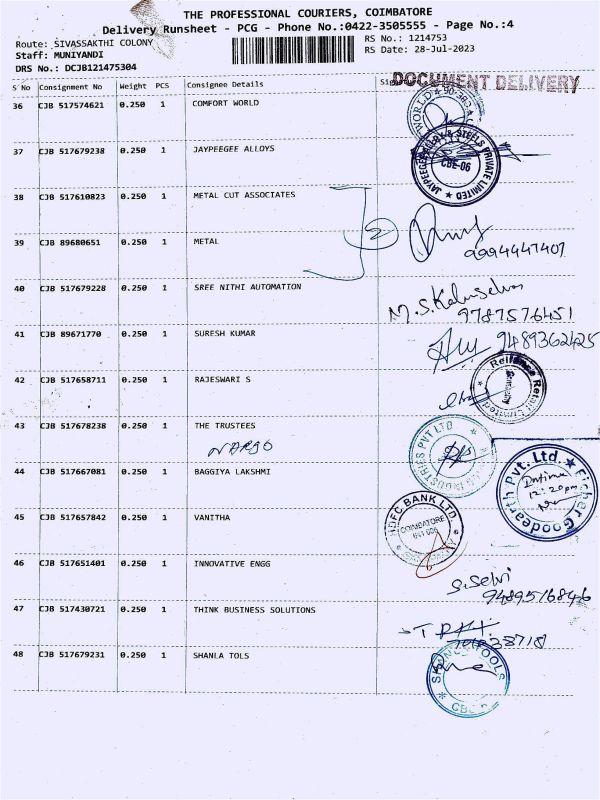 THE PROFESSIONAL COURIERS, COIMBATORE
Delivery Runsheet - PCG - Phone No.:0422-3505555 - Page No.:4
Route: SIVASSAKTHI COLONY
RS No.: 1214753
Staff: MUNIYANDI
RS Date: 28-Jul-2023
DRS No.: DCJB121475304
DOCUMENT DELIVERY
S No Consignment No Weight PCS Consignee Details
36 CJB 517574621 0.250 1 COMFORT WORLD
WORLD
37 CJB 517679238 0.250 1 JAYPEEGEE ALLOYS
JAYPEEGEE ALLOYS & STEELS PRIVATE LIMITED
CBE-06
38 CJB 517610823 0.250 1 METAL CUT ASSOCIATES
2
39 CJB 89680651 0.250 1 METAL
9994447407
40 CJB 517679228 0.250 1 SREE NITHI AUTOMATION
9787576451
41 CJB 89671770 0.250 1 SURESH KUMAR
9489362425
42 CJB 517658711 0.250 1 RAJESWARI S
Reliance Retail Limited
43 CJB 517678238 0.250 1 THE TRUSTEES
INDUSTRIES PVT LTD
44 CJB 517667081 0.250 1 BAGGIYA LAKSHMI
Goodearth Pvt. Ltd.
12:20pm
45 CJB 517657842 0.250 1 VANITHA
HDFC BANK LTD.
COIMBATORE
46 CJB 517651401 0.250 1 INNOVATIVE ENGG
S.Selvi
9489516846
47 CJB 517430721 0.250 1 THINK BUSINESS SOLUTIONS
48 CJB 517679231 0.250 1 SHANLA TOLS
TOOLS